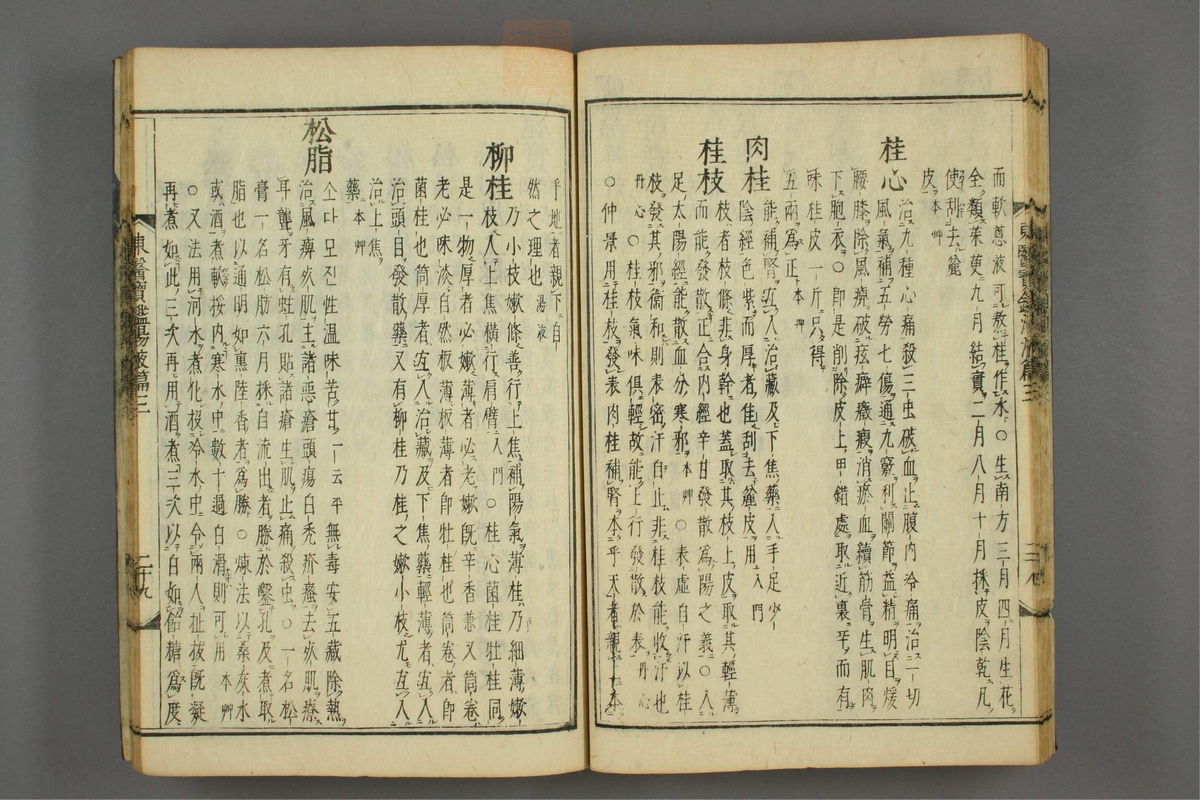 而軟葱液可熬桂作水○生南方三月四月生花
全類茱萸九月結實二月八月十月採皮陰乾凡
使刮去麄
皮本艸
桂心 治九種心痛殺三虫破血止腹內冷痛治一切
風氣補五勞七傷通九竅利關節益精明目煖
腰膝除風痺破痃癖癥瘕消瘀血續筋骨生肌肉
下胞衣○即是削除皮上甲錯處取近裏辛而有
味桂皮一斤只得
五兩爲正本艸
肉桂 能補腎宜入治藏及下焦藥入手足少
陰經色紫而厚者佳刮去麄皮用入門
桂枝 枝者枝條非身幹也蓋取其枝上皮取其輕薄
而能發散正合內經辛甘發散爲陽之義○入
足太陽經能散血分寒邪本艸○表虛自汗以桂
枝發其邪衛和則表密汗自止非桂枝能收汗也
丹心○桂枝氣味俱輕故能上行發散於表丹心
○仲景用桂枝發表肉桂補腎本乎天者親上本
乎地者親下自
然之理也湯液
柳桂 乃小枝嫩條善行上焦補陽氣薄桂乃細薄嫩
枝入上焦橫行肩臂入門○桂心菌桂牡桂同
是一物厚者必嫩薄者必老嫩旣辛香兼又筒卷
老必味淡自然板薄板薄者即牡桂也筒卷者即
菌桂也筒厚者宜入治藏及下焦藥輕薄者宜入
治頭目發散藥又有柳桂乃桂之嫩小枝尤宜入
治上焦
藥本艸
松脂 소나모진性溫味苦甘一云平無毒安五藏除熱
治風痺死肌主諸惡瘡頭瘍白禿疥瘙去死肌療
耳聾牙有蛀孔貼諸瘡生肌止痛殺虫○一名松
膏一名松肪六月採自流出者勝於鑿孔及煮取
脂也以通明如熏陸香者爲勝○煉法以桑灰水
或酒煮軟挼內寒水中數十過白滑則可用本艸
○又法用河水煮化投冷水中令兩人扯拔旣凝
再煮如此三次再用酒煮三次以白如飴糖爲度
東醫寶鑑湯液篇三
二十九